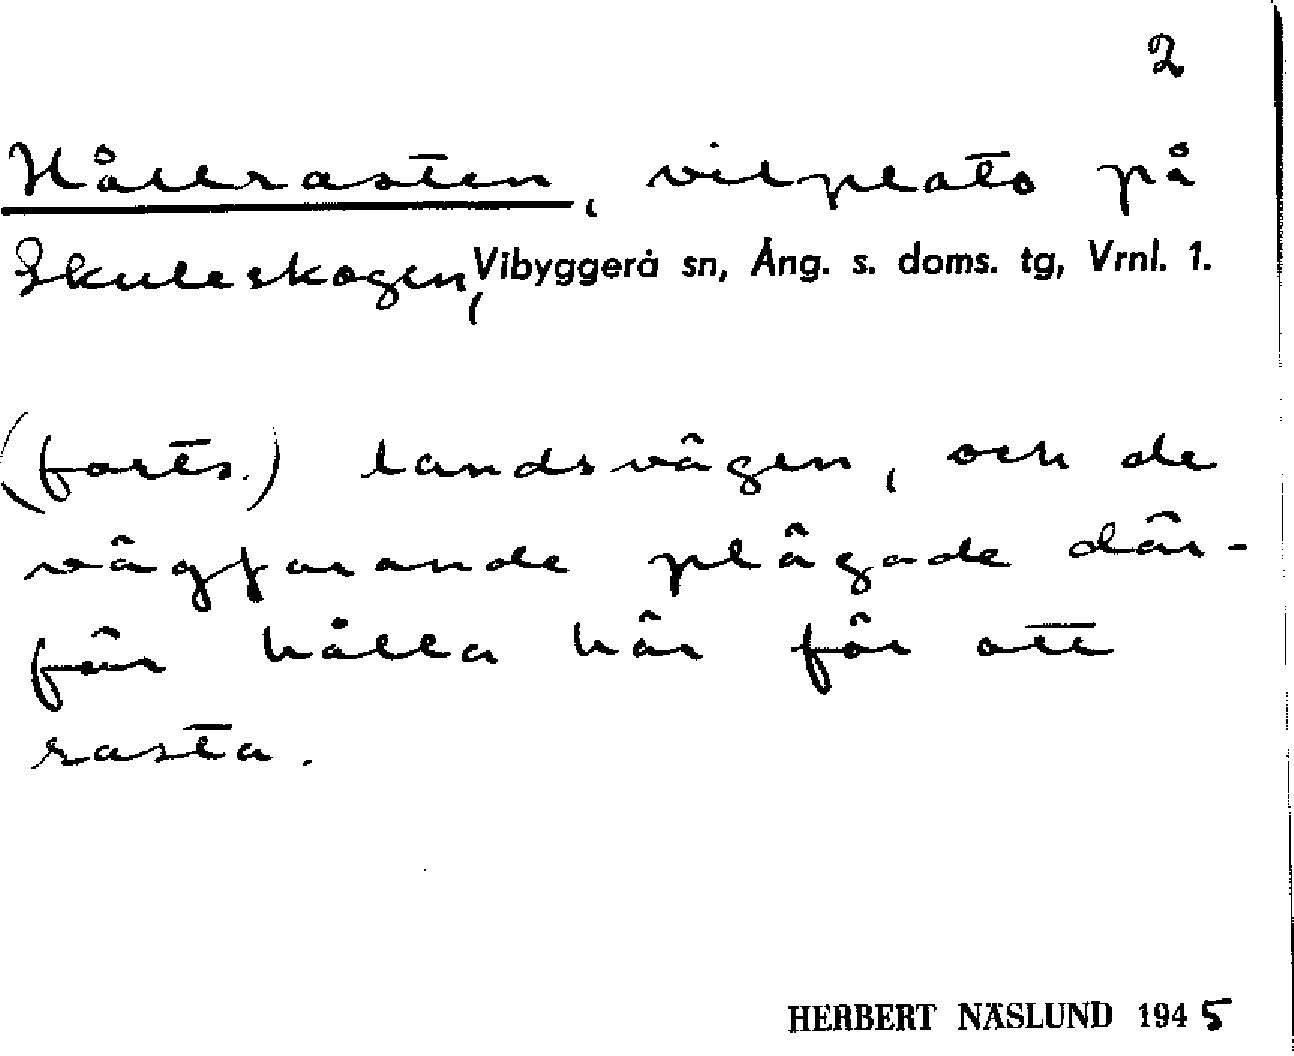 2
Hållrasten, vilplats på
Skuleskogen, Vibyggerå sn, Ång. s. doms. tg, Vrnl. 1.
(forts.) landsvägen, och de
vägfarande plägade där-
för hålla här för att
rasta.
HERBERT NÄSLUND 1945